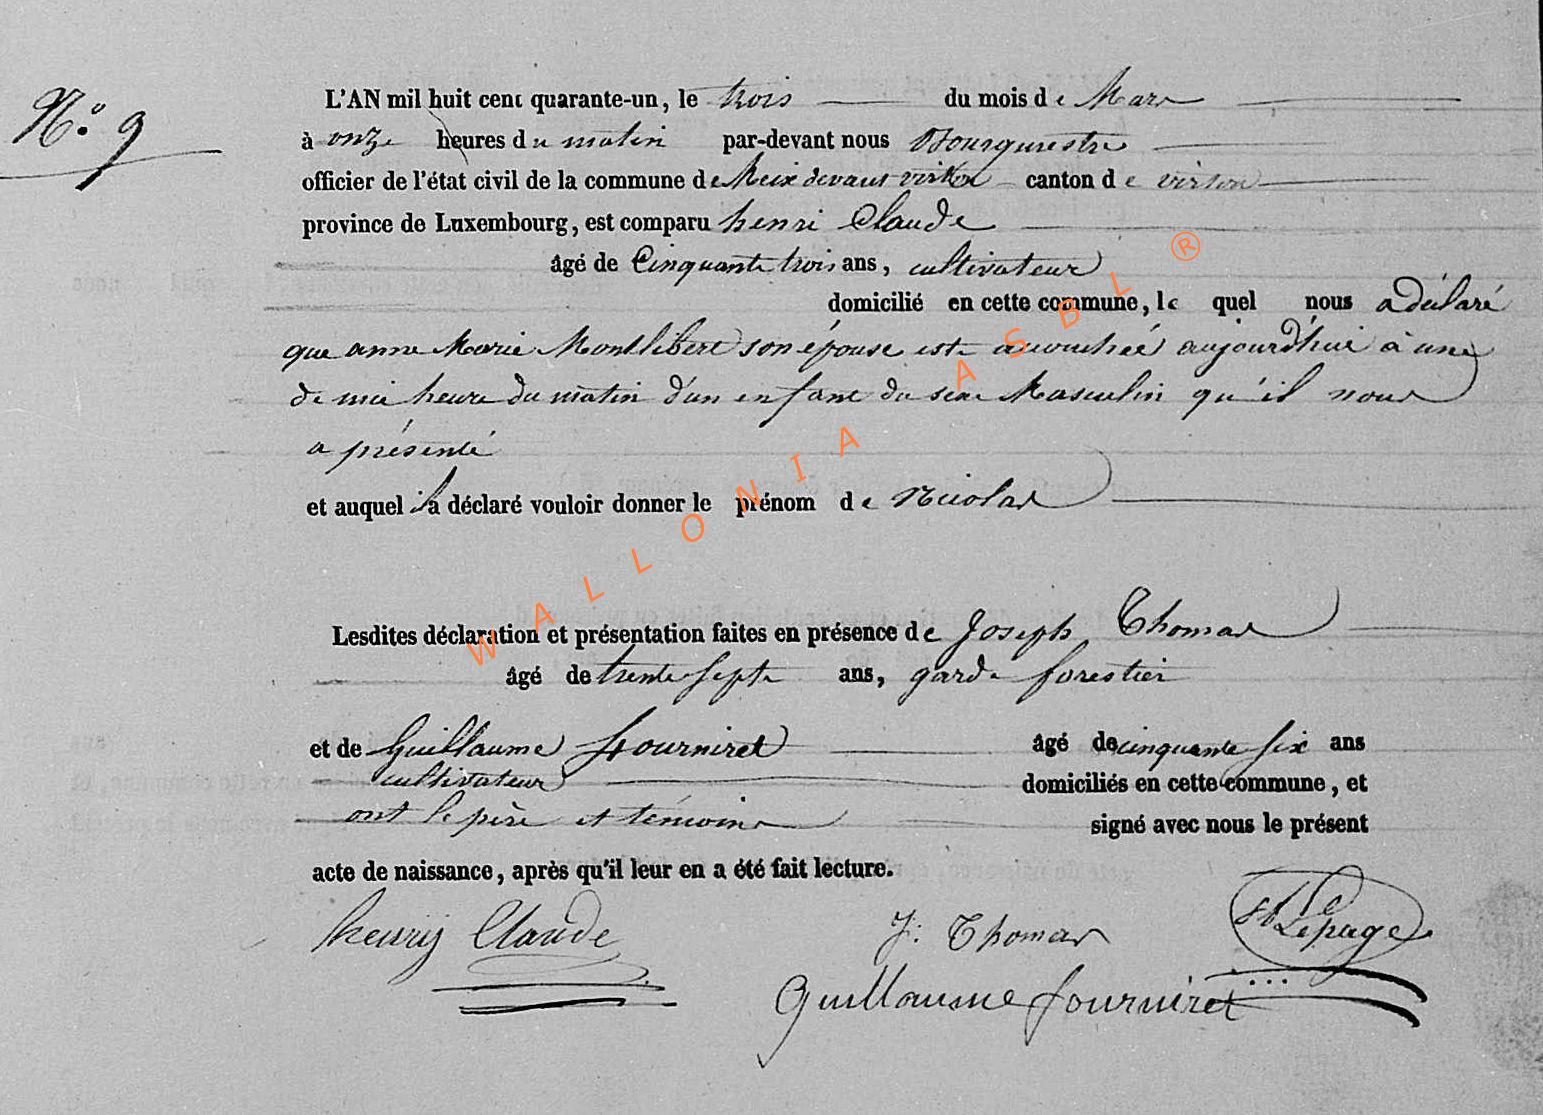 N.° 9
L'AN mil huit cent quarante-un, le trois du mois de Mars
à onze heures du matin par-devant nous Bourguestre
officier de l'état civil de la commune de Meix devant virton canton de virton
province de Luxembourg, est comparu henri Claude
âgé de Cinquante trois ans, cultivateur
domicilié en cette commune, le quel nous a déclaré
que anne Marie Montlibert son épouse est accouchée aujourd'hui à une
demie heure du matin d'un enfant du sexe Masculin qu'il nous
a présenté
et auquel il a déclaré vouloir donner le prénom de Nicolas
Lesdites déclaration et présentation faites en présence de Joseph Thomas
âgé de trente sept ans, garde forestier
et de Guillaume fourniret âgé de cinquante six ans
cultivateur domiciliés en cette commune, et
ont le père et témoins signé avec nous le présent
acte de naissance, après qu'il leur en a été fait lecture.
henrij Claude J: Thomas Lepage
Guillaume fourniret
WALLONIA ASBL ®